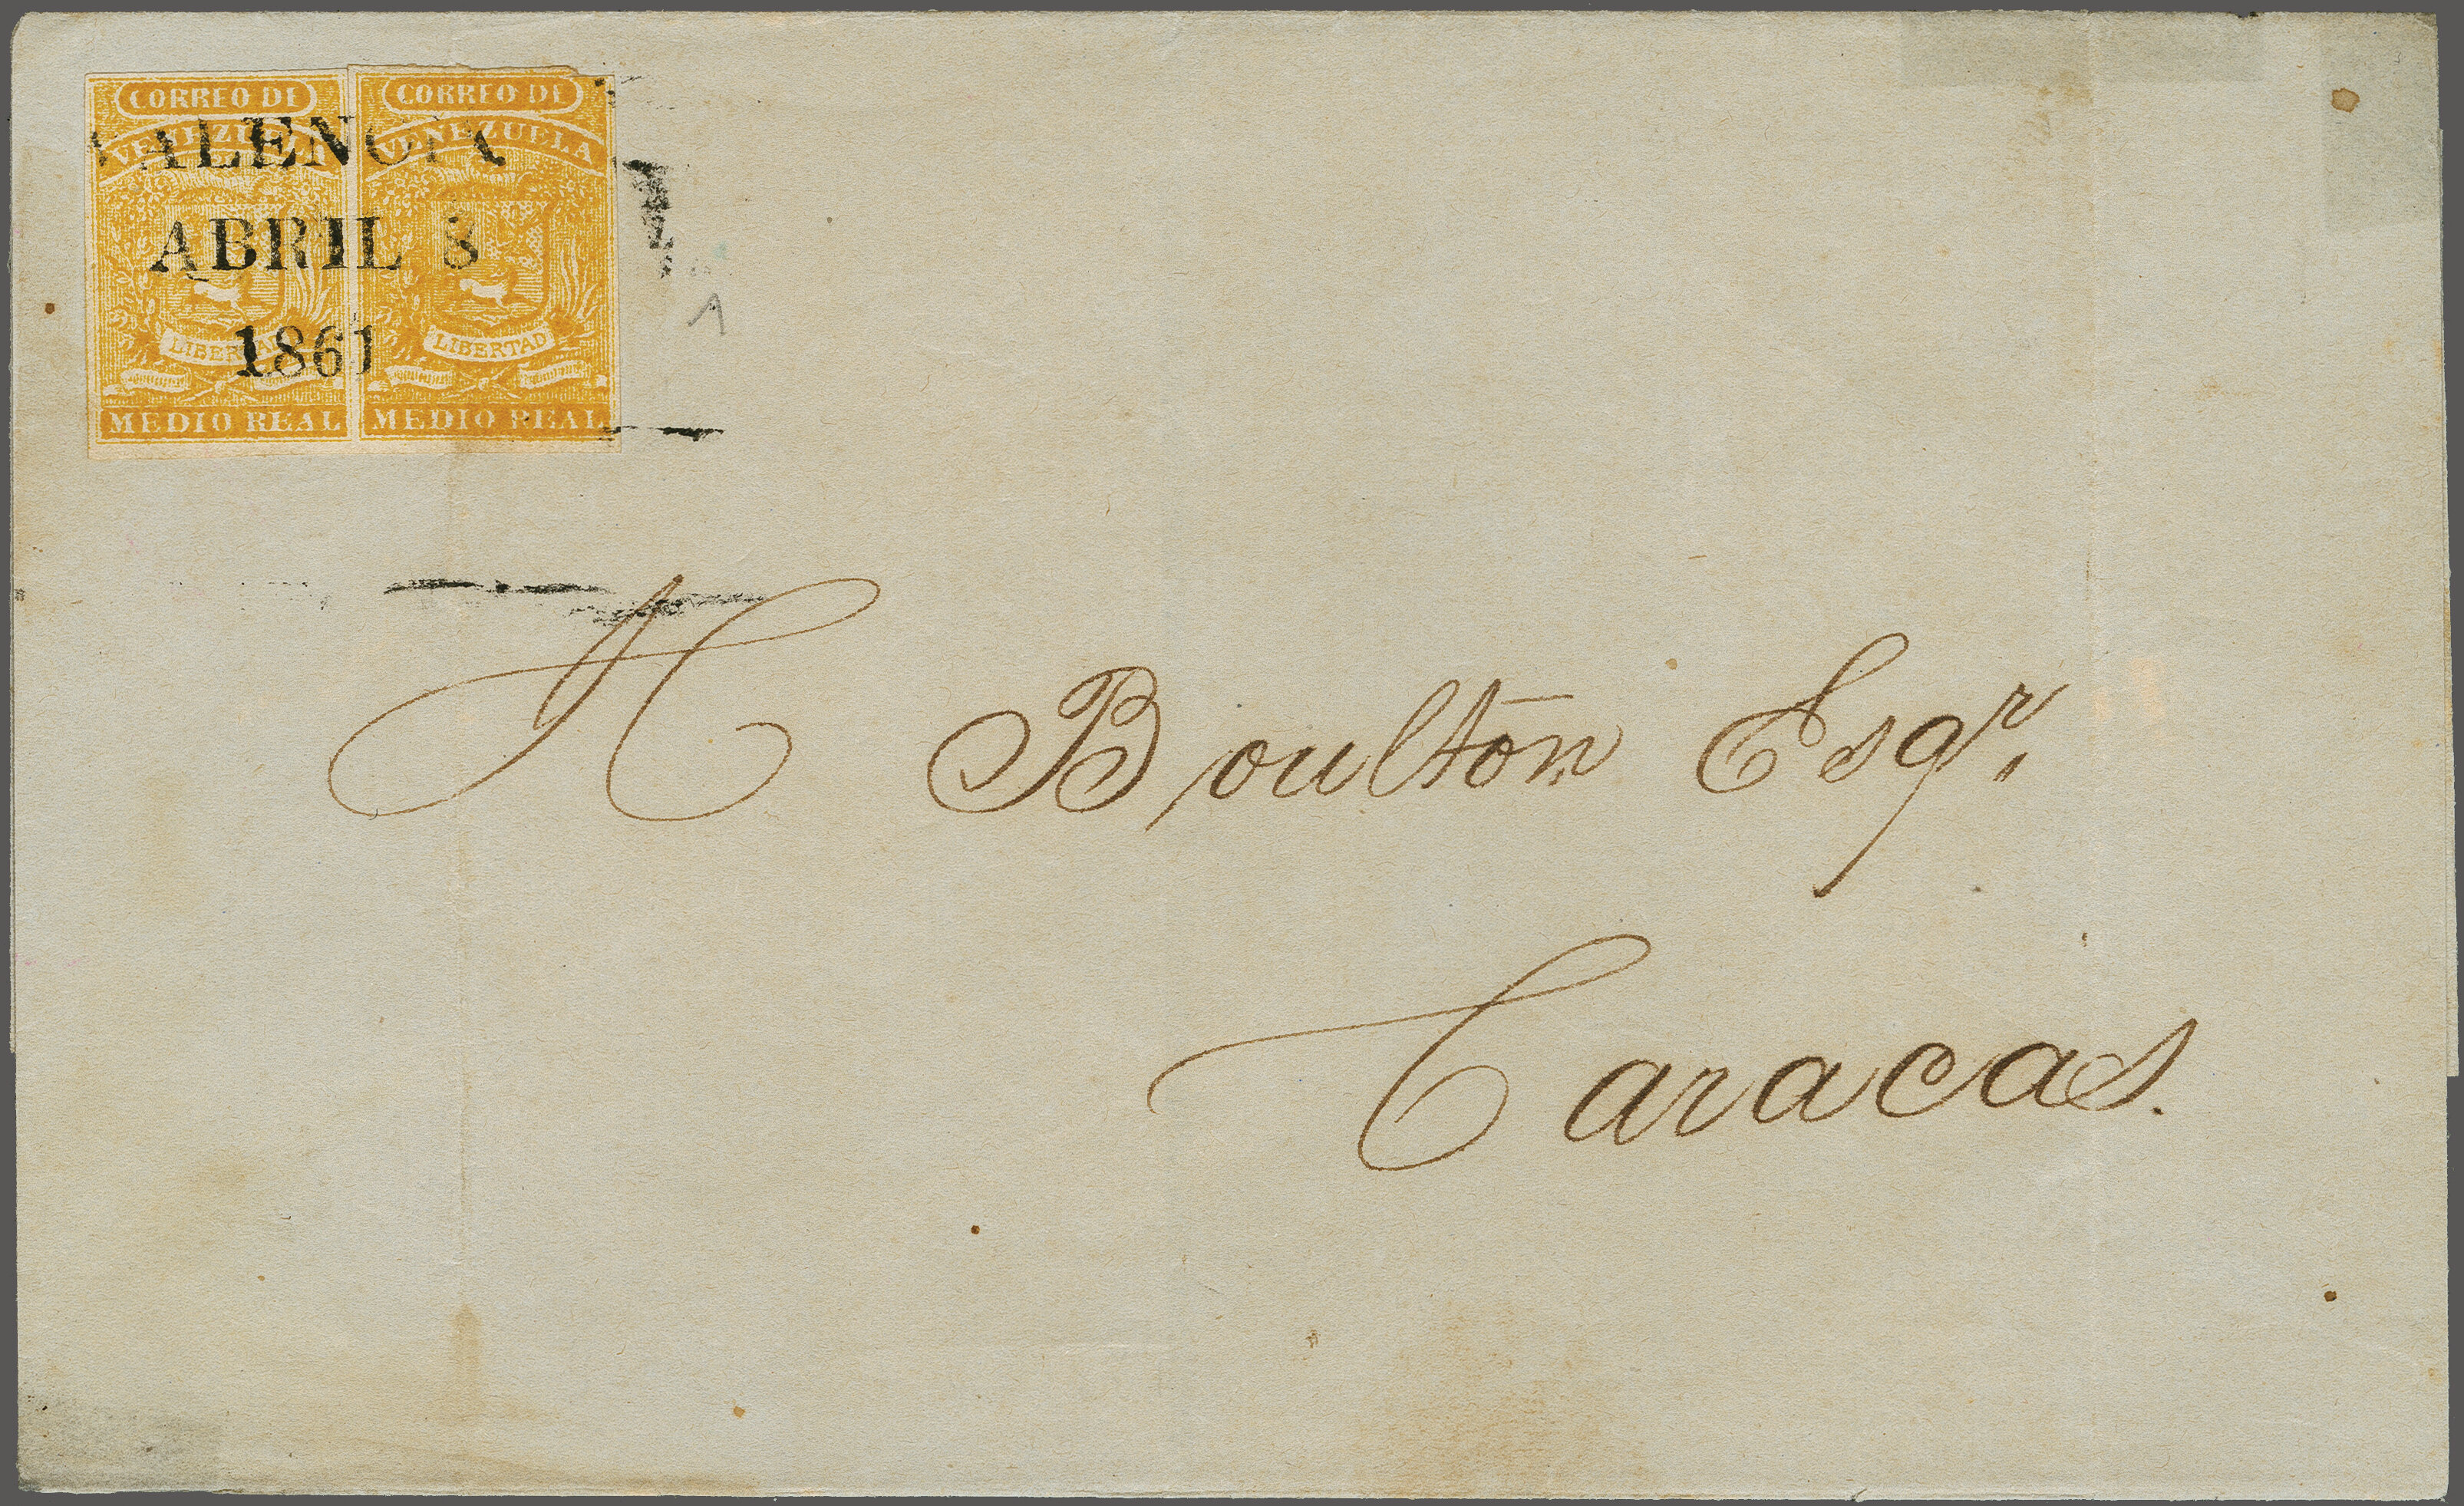 CORREO DE
VENEZUELA
LIBERTAD
MEDIO REAL
CORREO DE
VENEZUELA
LIBERTAD
MEDIO REAL
VALENCIA
ABRIL 8
1861
1
H Boulton Esqr.
Caracas.